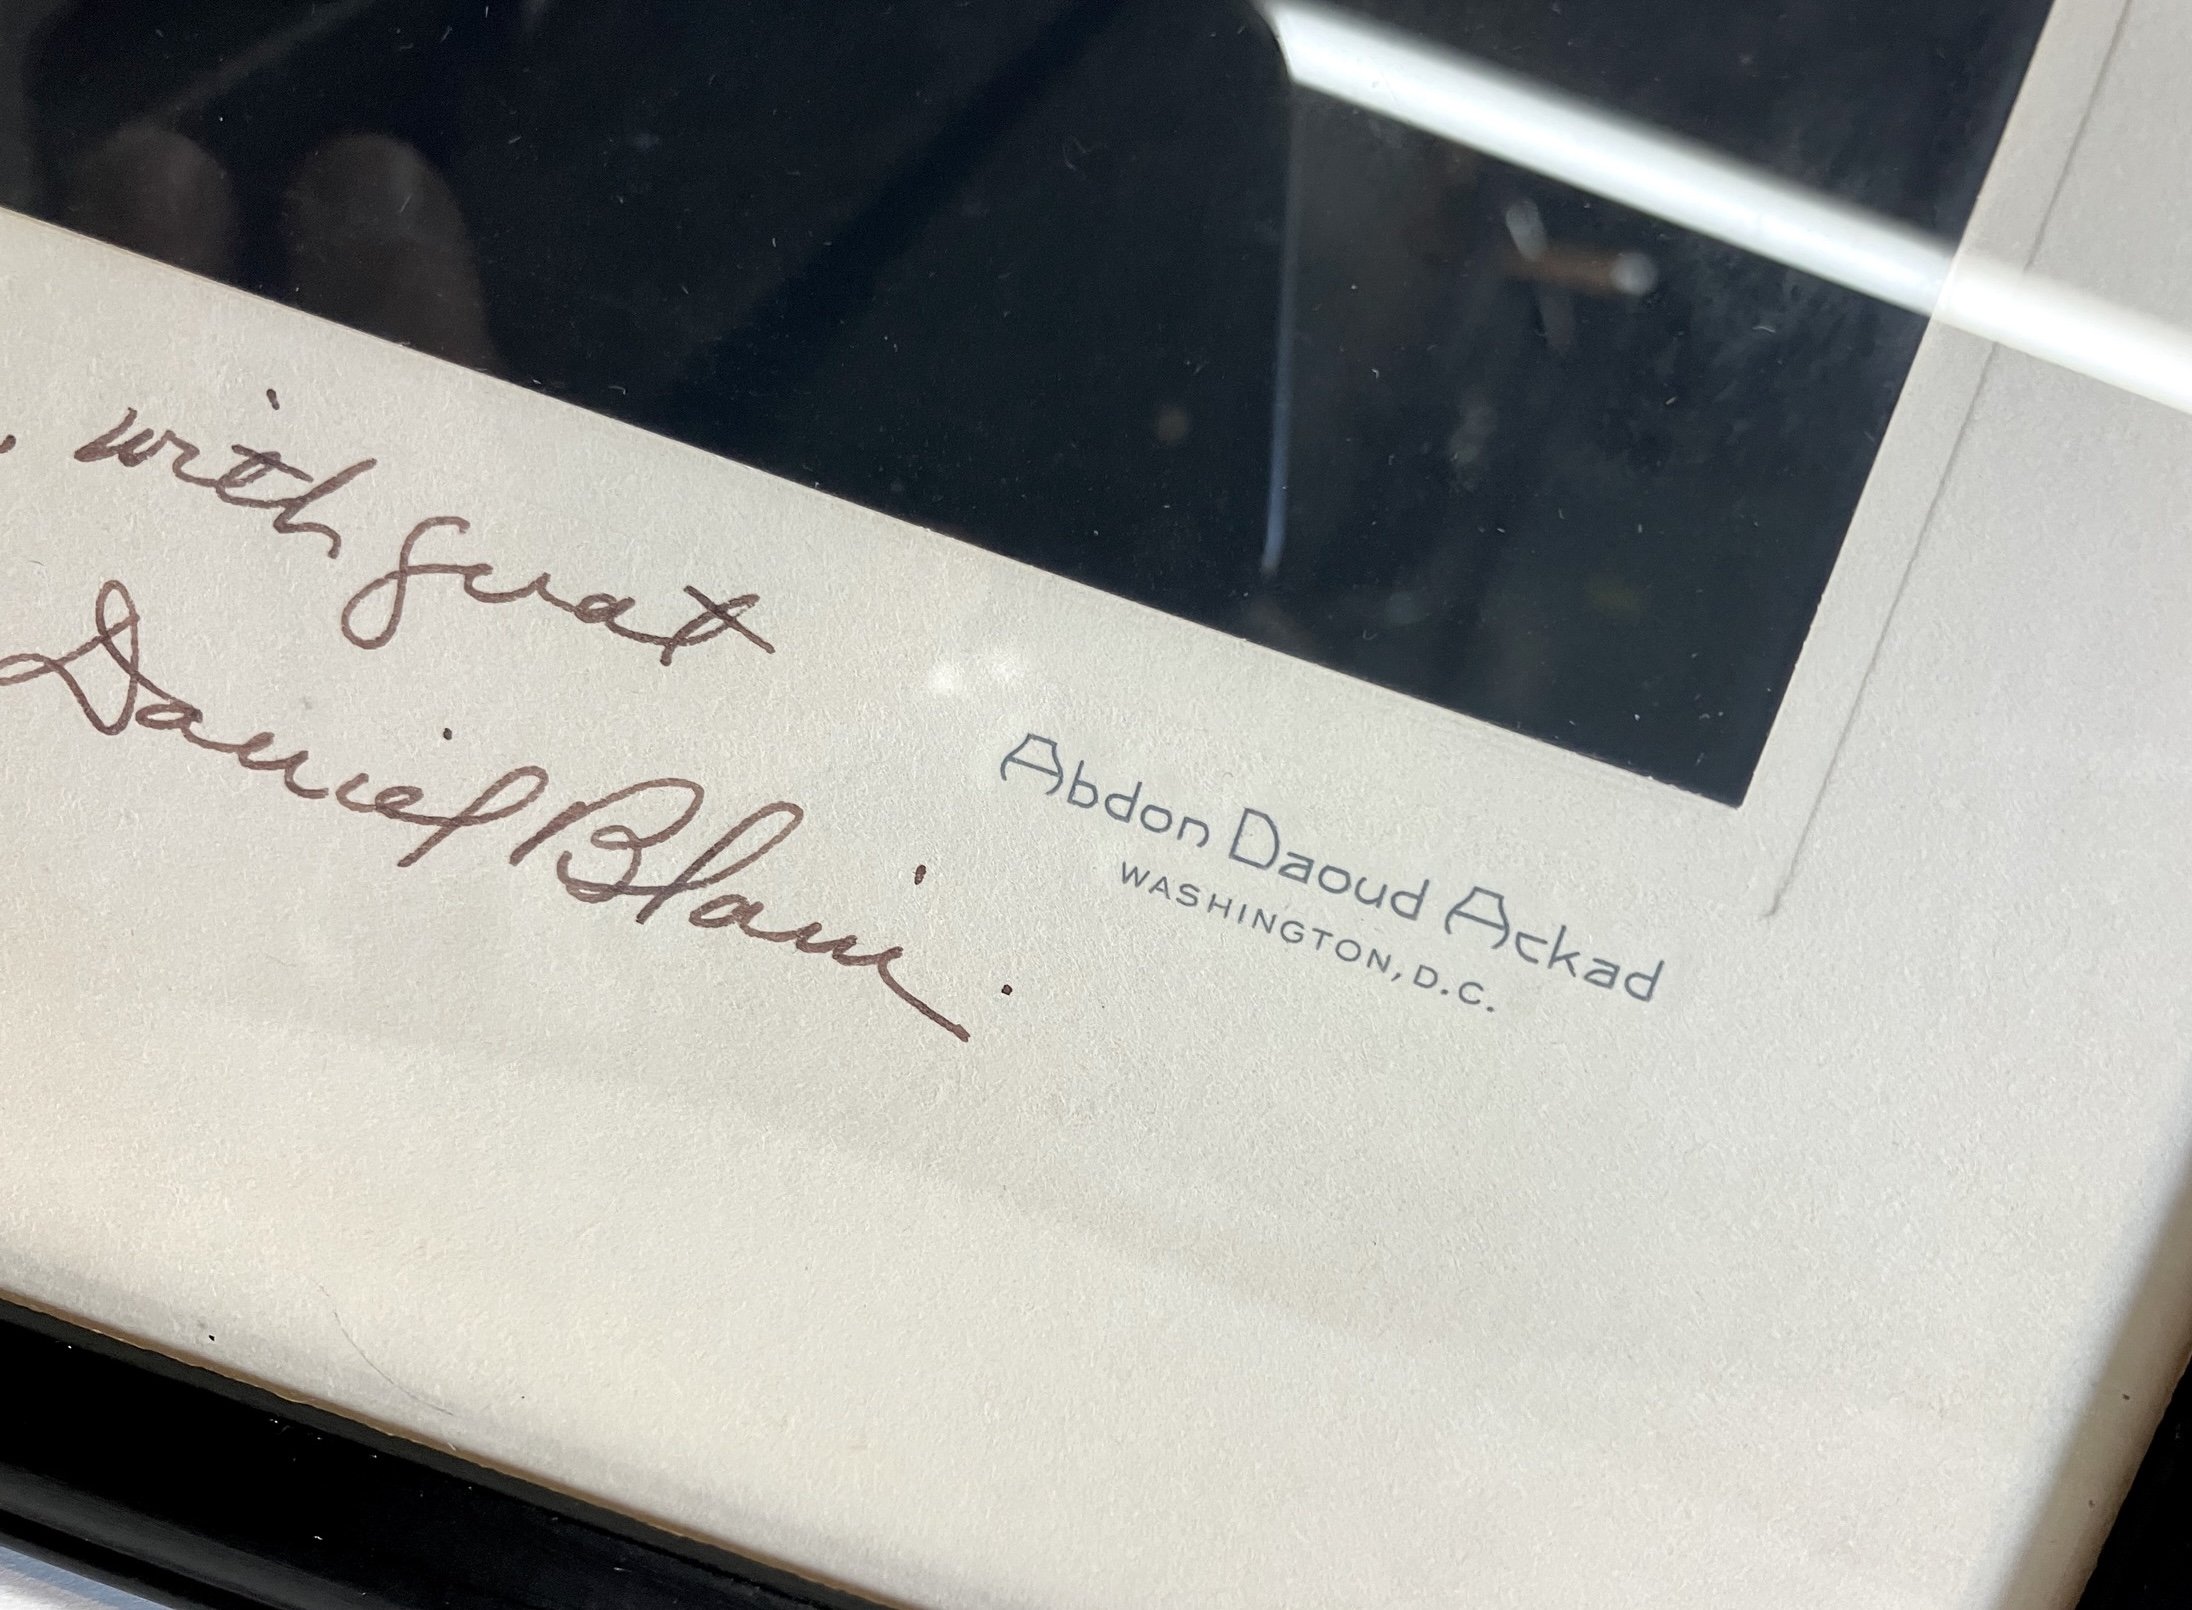 . with great
Daniel Blain.
Abdon Daoud Ackad
WASHINGTON, D.C.